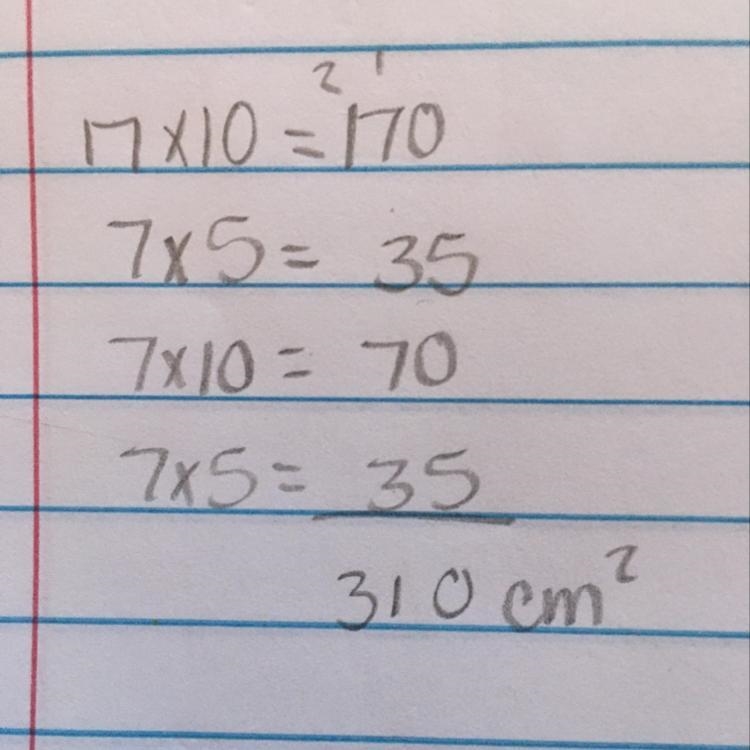 2 1
17x10 = 170
7x5 = 35
7x10 = 70
7x5 = 35
310 cm²